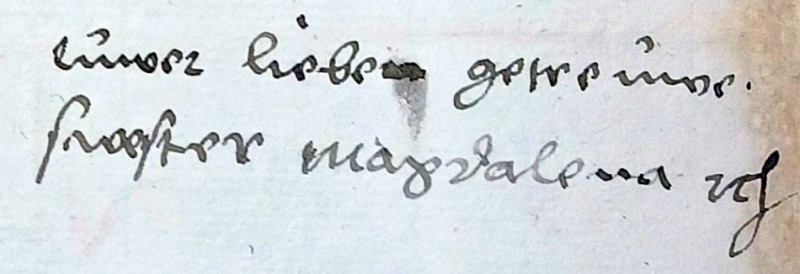 eüwer lieben getreüwe.
swester magdalena etc